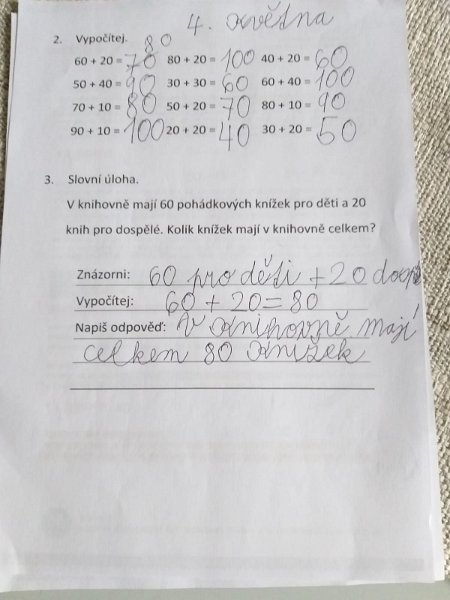 4. května
2. Vypočítej. 80
60 + 20 = 70 80 + 20 = 100 40 + 20 = 60
50 + 40 = 90 30 + 30 = 60 60 + 40 = 100
70 + 10 = 80 50 + 20 = 70 80 + 10 = 90
90 + 10 = 100 20 + 20 = 40 30 + 20 = 50
3. Slovní úloha.
V knihovně mají 60 pohádkových knížek pro děti a 20
knih pro dospělé. Kolik knížek mají v knihovně celkem?
Znázorni: 60 pro děti + 20 dosp
Vypočítej: 60 + 20 = 80
Napiš odpověď: V knihovně mají
celkem 80 knížek